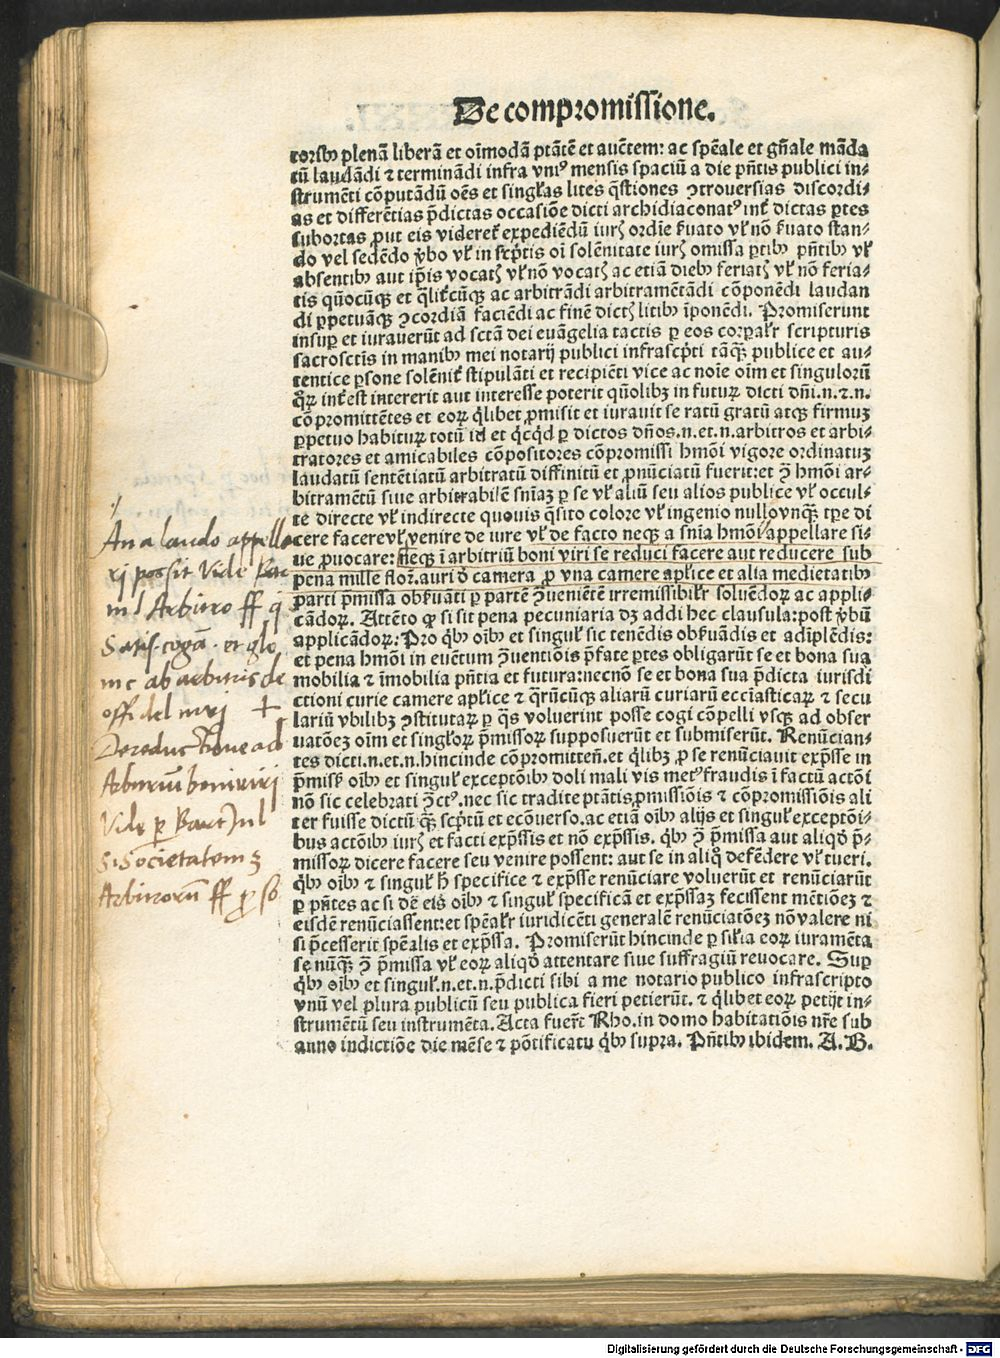 De compromissione.
torib9 plenā liberā et oīmodā ptātē et auctēm: ac spēale et gn̄ale māda
tū laudādi ⁊ termināndi infra vni9 mensis spaciū a die pn̄tis publici in⸗
strumēti cōputādū oēs et singl̄as lites q̄stiones ꝯtrouersias discordi⸗
as et differētias p̄dictas occasiōe dicti archidiaconat9 int̄ dictas ꝑtes
subortas ꝓut eis videret̄ expediēdū iur̄ ordīe ẜuato vl̄ nō ẜuato stan⸗
do vel sedēdo v̄bo vl̄ in sc̄pt̄is oī solēnitate iur̄ omissa ꝑtib9 pn̄tib9 vl̄
absentib9 aut ip̄is vocat̄ vl̄ nō vocat̄ ac etiā dieb9 feriat̄ vl̄ nō feria⸗
tis qūocūqꝫ et q̄lit̄cūqꝫ ac arbitrādi arbitramētādi cōponēdi laudan
di ꝑpetuāqꝫ ꝯcordiā faciēdi ac finē dict̄ litib9 īponēdi. Promiserunt
insuꝑ et iurauerūt ad sctā dei euāgelia tactis ꝑ eos corꝑalr̄ scripturis
sacrosctis in manib9 mei notarij publici infrascp̄ti tāqꝫ publice et au⸗
tentice ꝑsone solēnit̄ stipulāti et recipiēti vice ac noīe oīm et singulorū
qꝝ int̄est intererit aut interesse poterit qūolibꝫ in futuꝝ dicti dn̄i .n.⁊.n.
cōpromittētes et eoꝝ q̄libet ꝓmisit et iurauit se ratū gratū atqꝫ firmuꝫ
ꝑpetuo habituꝝ totū id et q̄cq̄d ꝑ dictos dn̄os .n.et.n. arbitros et arbi⸗
tratores et amicabiles cōpositores cōpromissi hmōi vigore ordinatuꝫ
laudatū sentētiatū arbitratū diffinitū et ꝓnūciatū fuerit: et ꝯ̄ hmōi ar⸗
bitramētū siue arbitrabilē sn̄iaꝫ ꝑ se vl̄ aliū seu alios publice vl̄ occul⸗
te directe vl̄ indirecte quouis q̄sito colore vl̄ ingenio nullo vnqꝫ tꝑe di
cere facere vl̄ venire de iure vl̄ de facto neqꝫ a sn̄ia hmōi appellare si⸗
ue ꝓuocare: neqꝫ ī arbitriū boni viri se reduci facere aut reducere sub
pena mille flor̄. auri ō camera ꝓ vna camere apl̄ice et alia medietatib9
parti p̄missa obẜuāti ꝑ partē ꝯueniētē irremissibilr̄ soluēdoꝝ ac appli⸗
cādoꝝ. Attēto ꝙ si sit pena pecuniaria dꝫ addi hec clausula: post v̄bū
applicādoꝝ: Pro q̄b9 oīb9 et singul̄ sic tenēdis obẜuādis et adīplēdis:
et pena hmōi in euētum ꝯuentiōis p̄fate ꝑtes obligarūt se et bona sua
mobilia ⁊ īmobilia pn̄tia et futura: necnō se et bona sua p̄dicta iurisdi
ctioni curie camere apl̄ice ⁊ q̄rūcūqꝫ aliarū curiarū ecclīasticaꝝ ⁊ secu
lariū vbilibꝫ ꝯstitutaꝝ ꝑ q̄s voluerint posse cogi cōpelli vsqꝫ ad obser
uatōeꝫ oīm et singl̄oꝝ p̄missoꝝ supposuerūt et submiserūt. Renūcian⸗
tes dicti .n.et.n. hincinde cōpromitten̄. et q̄libꝫ ꝓ se renūciauit exp̄sse in
p̄misẜ oīb9 et singul̄ exceptōib9 doli mali vis met9 fraudis ī factū actōi
nō sic celebrati ꝯ̄ct9. nec sic tradite ptātis ꝓmissiōis ⁊ cōpromissiōis ali
ter fuisse dictū qꝫ scp̄tū et ecōuerso. ac etiā oīb9 alijs et singul̄ exceptōi⸗
bus actōib9 iur̄ et facti exp̄ssis et nō exp̄ssis. q̄b9 ꝯ̄ p̄missa aut aliqō p̄⸗
missoꝝ dicere facere seu venire possent: aut se in aliq̄ defēdere vl̄ tueri.
q̄b9 oīb9 ⁊ singul̄ h̄ specifice ⁊ exp̄sse renūciare voluerūt et renūciarūt
ꝑ pn̄tes ac si de eis oīb9 ⁊ singul̄ specificā et exp̄ssaꝫ fecissent mētiōeꝫ ⁊
eisdē renūciassent: et spēalr̄ iuridicēti generalē renūciatōeꝫ nō valere ni
si p̄cesserit spēalis et exp̄ssa. Promiserūt hincinde ꝑ sil̄ia eoꝝ iuramēta
se nūqꝫ ꝯ̄ p̄missa vl̄ eoꝝ aliqō attentare siue suffragiū reuocare. Suꝑ
q̄b9 oīb9 et singul̄ .n.et.n. p̄dicti sibi a me notario publico infrascripto
vnū vel plura publicū seu publica fieri petierūt. ⁊ q̄libet eoꝝ petijt in⸗
strumētū seu instrumēta. Acta fuer̄t Rho. in domo habitatiōis nr̄e sub
anno indictiōe die mēse ⁊ pōtificatu q̄b9 supra. Pn̄tib9 ibidem. A. B.
An a laudo appella
rj possit Vide Bar
in l Arbitro ff q̄
Satis. cogā. et glo
in c ab arbitris de
offi del in vj +
De reductione ad
Arbitriū boni viri
Vide ꝑ Bart in l
Si Societatem §
Arbitrorū ff ꝓ so
Digitalisierung gefördert durch die Deutsche Forschungsgemeinschaft - DFG